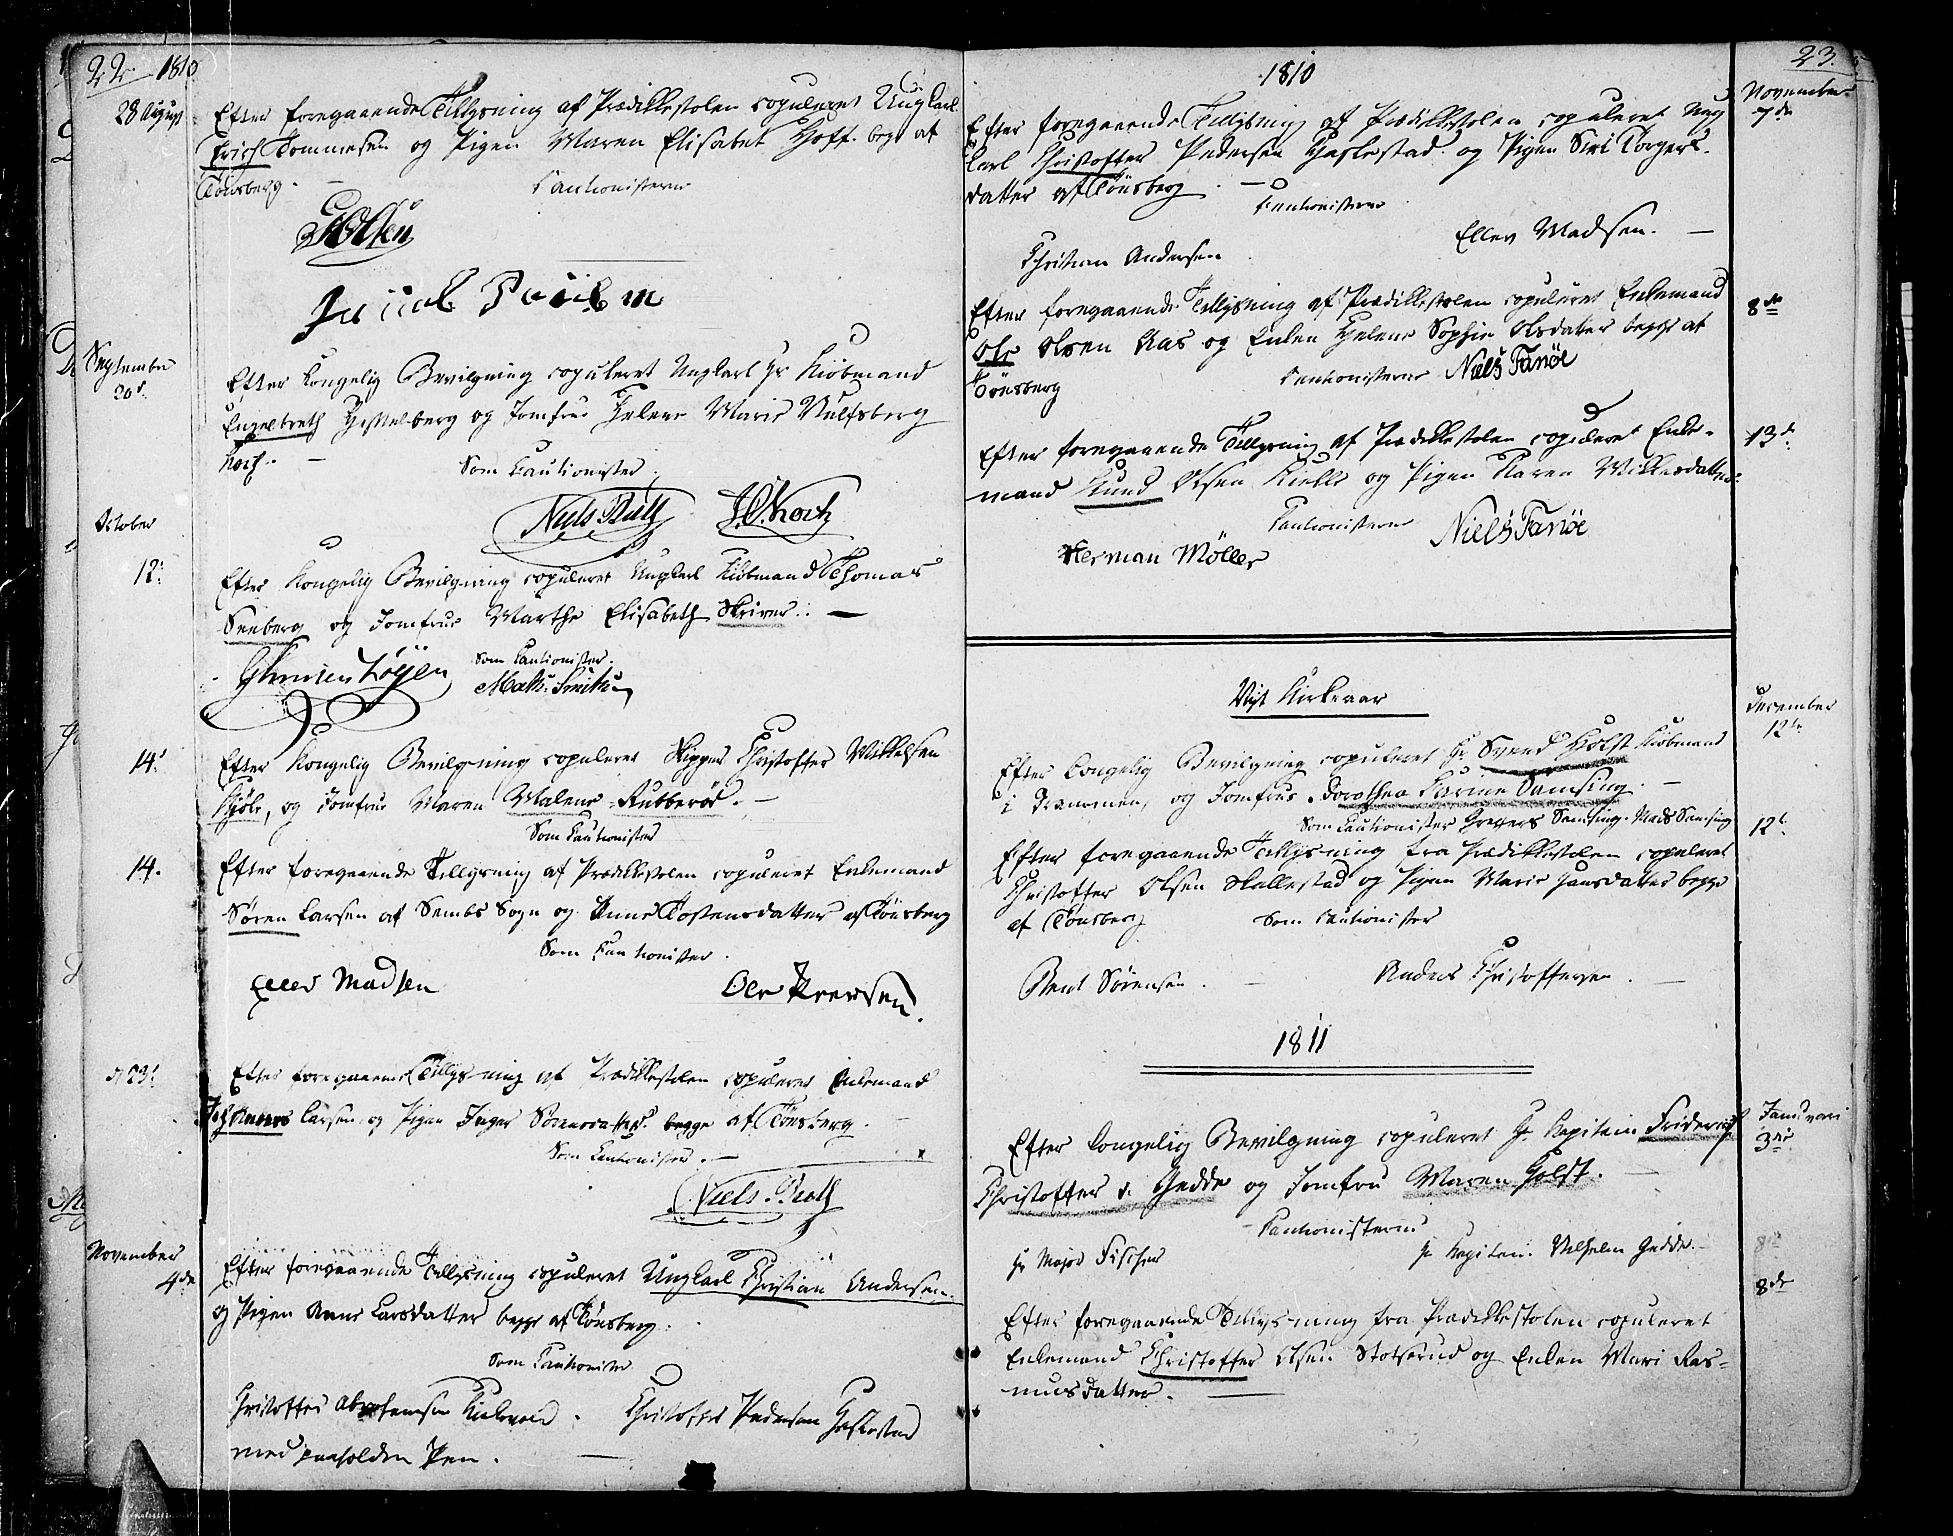 22. 1810
28 August
Efter foregaaende Tillysning af Prædikestolen copuleret Ungkarl
Erich Tommesen og Pigen Maren Elisabet Hoff. begge af
Tønsberg.
Cautionisterne
September
20d.
Efter kongelig Bevilgning copuleret Ungkarl Hr Kiöbmand
Engelbreth Hesselberg og Jomfrue Helene Marie Wulfsberg
Koch.
Som Cautionister.
Niels Bull J. O. Koch
October
12te
Efter kongelig Bevilgning copuleret Ungkarl Kiöbmand Thomas
Seeberg og Jomfrue Marthe Elisabeth Skriver.
Som Cautionister.
Math: Smith
14d.
Efter kongelig Bevilgning copuleret Skipper Christoffer Mikkelsen
Kjöle, og Jomfrue Maren Malene Aubberöd.
Som Cautionister
14.
Efter foregaaende Tillysning af Prædikestolen copuleret Enkemand
Sören Larsen af Sembs Sogn og Anne Tostensdatter af Tönsberg
Som Cautionister.
Eller Madsen Ole Iversen.
d 23d.
Efter foregaaende Tillysning af Prædikestolen copuleret Enkemand
Johannes Larsen og Pigen Inger Sörensdatter begge af Tönsberg.
Som Cautionister.
Niels Buch
November
4de
Efter foregaaende Tillysning copuleret Ungkarl Christian Andersen
og Pigen Anne Larsdatter begge af Tönsberg.
Som Cautionister
Christoffer Abrahamsen . Christoffer Pedersen Haslestad
med paaholden Pen.
1810
23.
November
7de
Efter foregaaende Tillysning af Prædikestolen copuleret Ung
karl Christoffer Pedersen Haslestad og Pigen Siri Torgers-
datter af Tönsberg.
Cautionisterne
Christian Andersen Eller Madsen.
8de
Efter foregaaende Tillysning af Prædikestolen copuleret Enkemand
Ole Olsen Aas og Enken Helene Sophie Olsdatter begge af
Tönsberg
Cautionisterne Niels Fanöe
13de
Efter foregaaende Tillysning af Prædikestolen copuleret Enke-
mand Knud Olsen Kielle og Pigen Karen Mikkelsdatter
Cautionisterne Niels Fanöe
Herman Möller
Nyt Kirkeaar
December
12te
Efter kongelig Bevilgning copuleret Hr Svend Holst Kiöbmand
i Drammen, og Jomfrue Dorothea Karine Samsing.
Som Cautionister Grevers Samsing. Mads Samsing
12te
Efter foregaaende Tillysning fra Prædikestolen copuleret
Christoffer Olsen Skallestad og Pigen Marie Hansdatter begge
af Tönsberg Som Cautionister
Bent Sörensen. Anders Christoffersen.
1811
Januari
3die
Efter kongelig Bevilgning copuleret Hr Kapitain Friderich
Christoffer v. Gedde og Jomfru Maren Holst.
Cautionisterne
Hr Major Fischer Hr Kapitain Wilhelm Gedde.
8de
8de
Efter foregaaende Tillysning fra Prædikestolen copuleret
Enkemand Christoffer Olsen Stolserud og Enken Mari Ras-
musdatter.